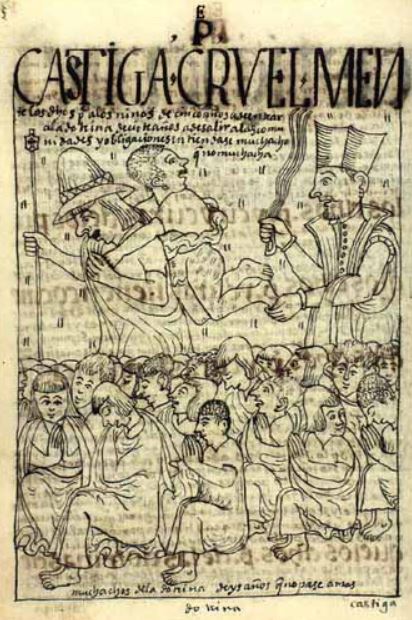 E
P
CASTIGA·CRVEL·MEN
te los dhos p̃ a los niños de cinco años a de entrar
a la dotrina de ciete años a de salir a las comu
nidades y obligaciones entiendase muchacho
q̃ no muchacha
muchachos de la dotrina de ys años q̃ no pase a mas
do trina
castiga